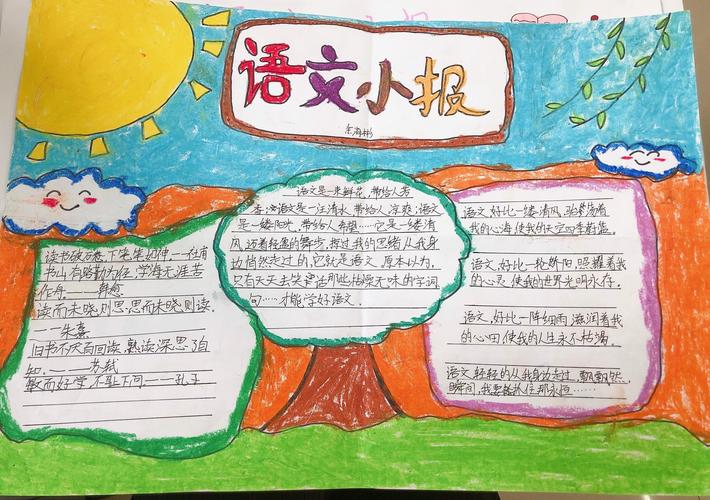 语文小报
余海彬
读书破万卷,下笔如有神。——杜甫
书山有路勤为径,学海无涯苦
作舟。——韩愈
读而未晓,则思,思而未晓,则读。
——朱熹
旧书不厌百回读,熟读深思了自
知。——苏轼
敏而好学,不耻下问。——孔子
——语文是一束鲜花,带给人芳
香;语文是一汪清水,带给人凉爽;语文
是一缕阳光,带给人希望……它是一缕清
风,迈着轻盈的舞步,挥过我的思绪,从我身
边悄然走过的,它就是语文,原本以为,
只有天天去
那些枯燥无味的字词
句……才能学好语文。
语文,好比一缕清风,
着
我的心海,使我的天空四季蔚蓝。
语文,好比一轮骄阳,照耀着我
的心灵,使我的世界光明永存。
语文,好比一阵细雨,滋润着我
的心田,使我的人生永不枯竭。
语文轻轻的从我身边走过,飘飘然,
瞬间,我要
抓住那永恒……